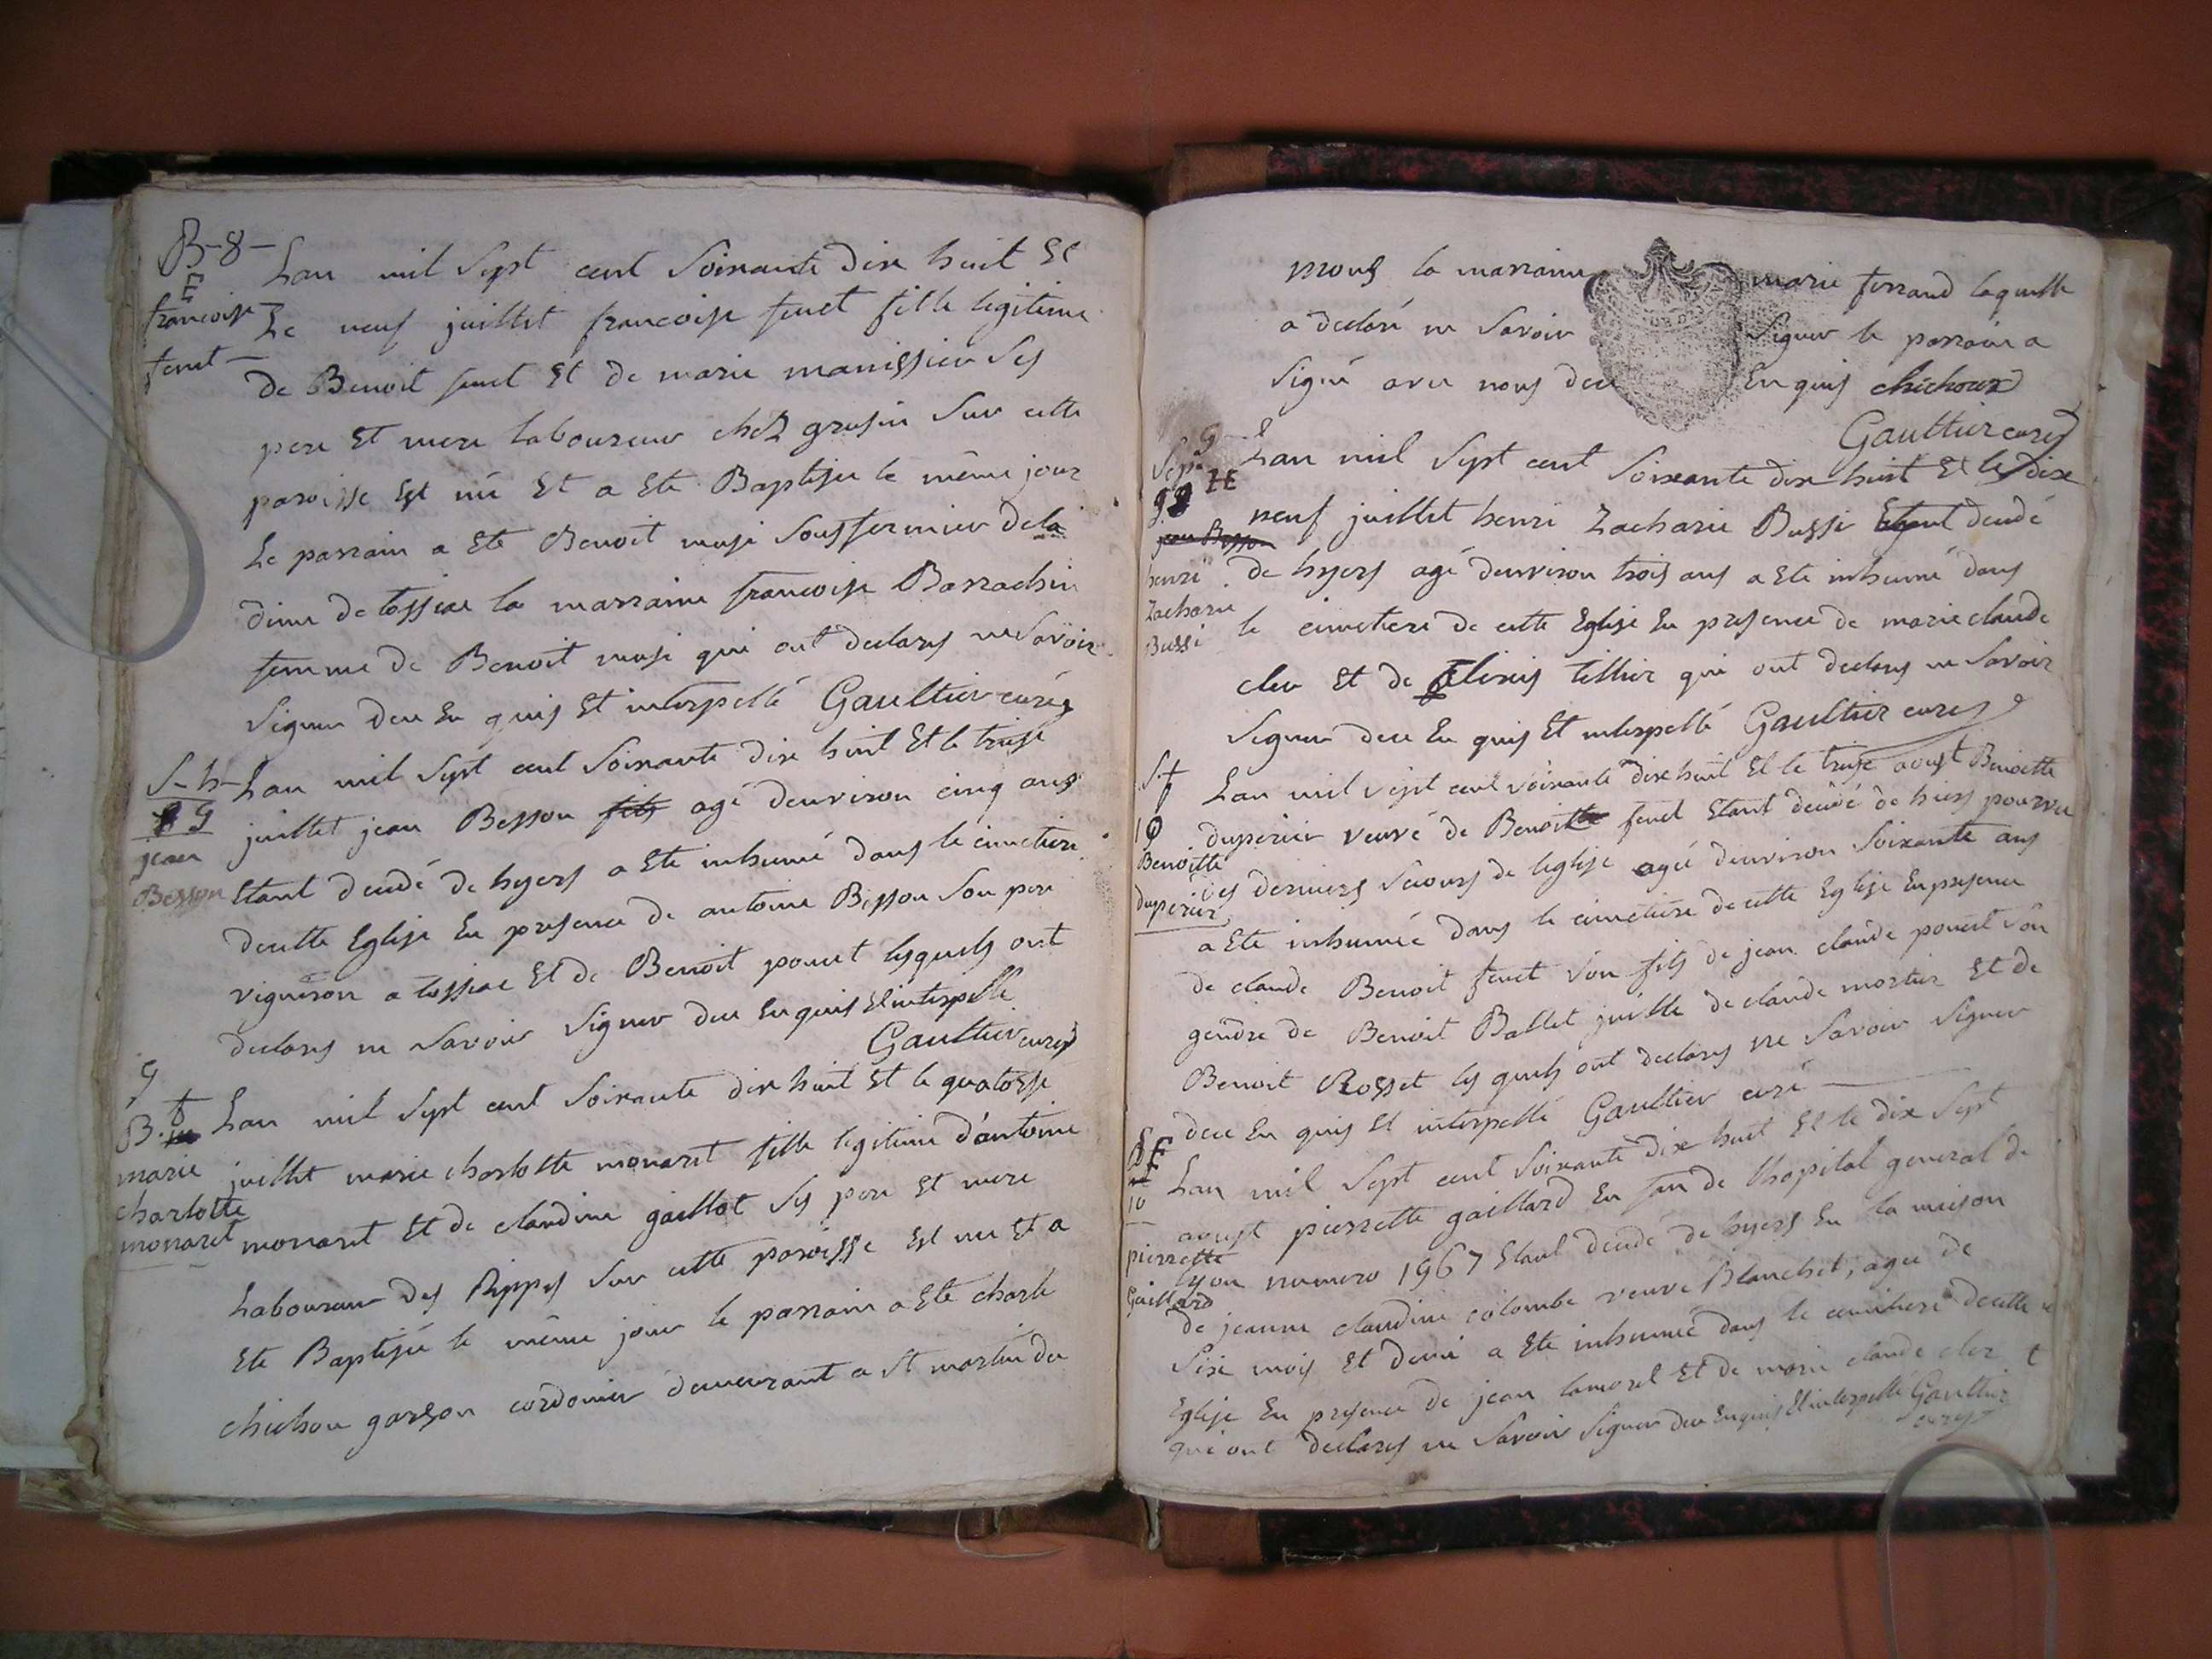 B-8-
F
francoise
fenet
Lan mil sept cent soixante dix huit Et
Le neuf juillet francoise fenet fille legitime
de Benoit fenet Et de marie manissier ses
pere Et mere laboureur chez grosin sur cette
paroisse Est né Et a Ete Baptisée le même jour
Le parrain a Ete Benoit musi sousfermier de la
dime de tossiae la marraine francoise Barrachin
femme de Benoit musi qui ont declarés ne Savoir
signer deu En quis Et interpellé Gaultier curé
S-h-
89
jean
Besson
Lan mil sept cent soixante dix huit Et le treise
juillet jean Besson fils agé denviron cinq ans
Etant decedé de hyers a Ete inhumé dans le cimetiere
decette Eglise En presence de antoine Besson son pere
vigneron a tossiae Et de Benoit pouet lesquels ont
declarés ne savoir signer deu Enquis Et interpellé
Gaultier curé
9
B. f
marie
charlotte
monaret
Lan mil sept cent soixante dix huit Et le quatorse
juillet marie charlotte monaret fille legitime d'antoine
monaret Et de claudine gaillot ses pere Et mere
Laboureur des Rippes sur cette paroisse Est né Et a
Ete Baptisée le même jour le parrain a Ete charle
chichou garson cordonier demeurant a st martin du
mons la marraine marie ferrand laquelle
a declaré ne savoir signer le parrain a
signé avec nous deu En quis chichoux
Gaultier curé
Sep
9
henri
Zacharie
Bussi
Lan mil sept cent soixante dix huit Et le dixe
neuf juillet henri Zacharie Bussi Etant decedé
de hyers agé denviron trois ans a Ete inhumé dans
le cimetiere de cette Eglise En presence de marie claude
cler Et de alexis tillier qui ont declarés ne savoir
signer deu En quis Et interpellé Gaultier curé
S. f
10
Benoitte
duperier
Lan mil sept cent soixante dix huit Et le treise aoust Benoitte
duperier veuve de Benoit fenet Etant decedé de hiers pourvu
des derniers secours de leglise agée denviron soixante ans
a Ete inhumée dans le cimetiere de cette Eglise En presence
de claude Benoit fenet son fils de jean claude pouet son
gendre de Benoit Ballet juille de claude mortier Et de
Benoit Rosset les quels ont declarés ne savoir signer
deu En quis Et interpellé Gaultier curé
S f
10
pierrette
Gaillard
Lan mil sept cent soixante dix huit Et le dix sept
aoust pierrette gaillard En fan de lhopital general de
lyon numero 1967 Etant decedé de hyers En la maison
de jeanne claudine colombe veuve Blanchet, agée de
Sixe mois Et demi a Ete inhumée dans le cimitiere de cette
Eglise En presence de jean lamorel Et de marie claude cler
qui ont declarés ne savoir signer deu Enquis Et interpellé Gaultier
curé